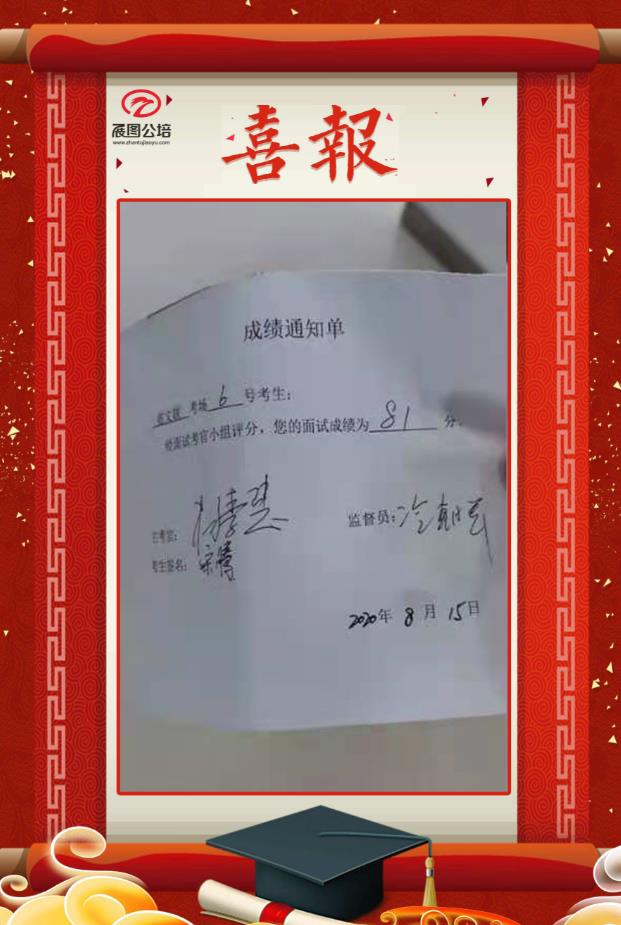 展图公培
www.zhantujiaoyu.com
喜報
成绩通知单
考场 6 号考生:
经面试考官小组评分，您的面试成绩为 81 分.
主考官:
监督员:
考生签名:
2020年 8 月 15日